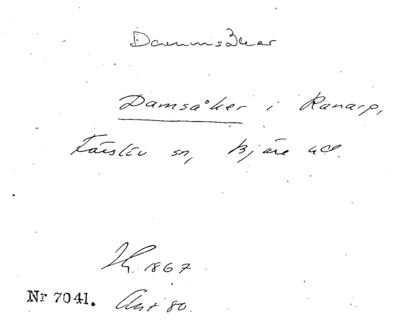 Dammsåker
Damsåker i Ranarp,
sn, Bjäre hd.
1867
Nr 7041. 80.